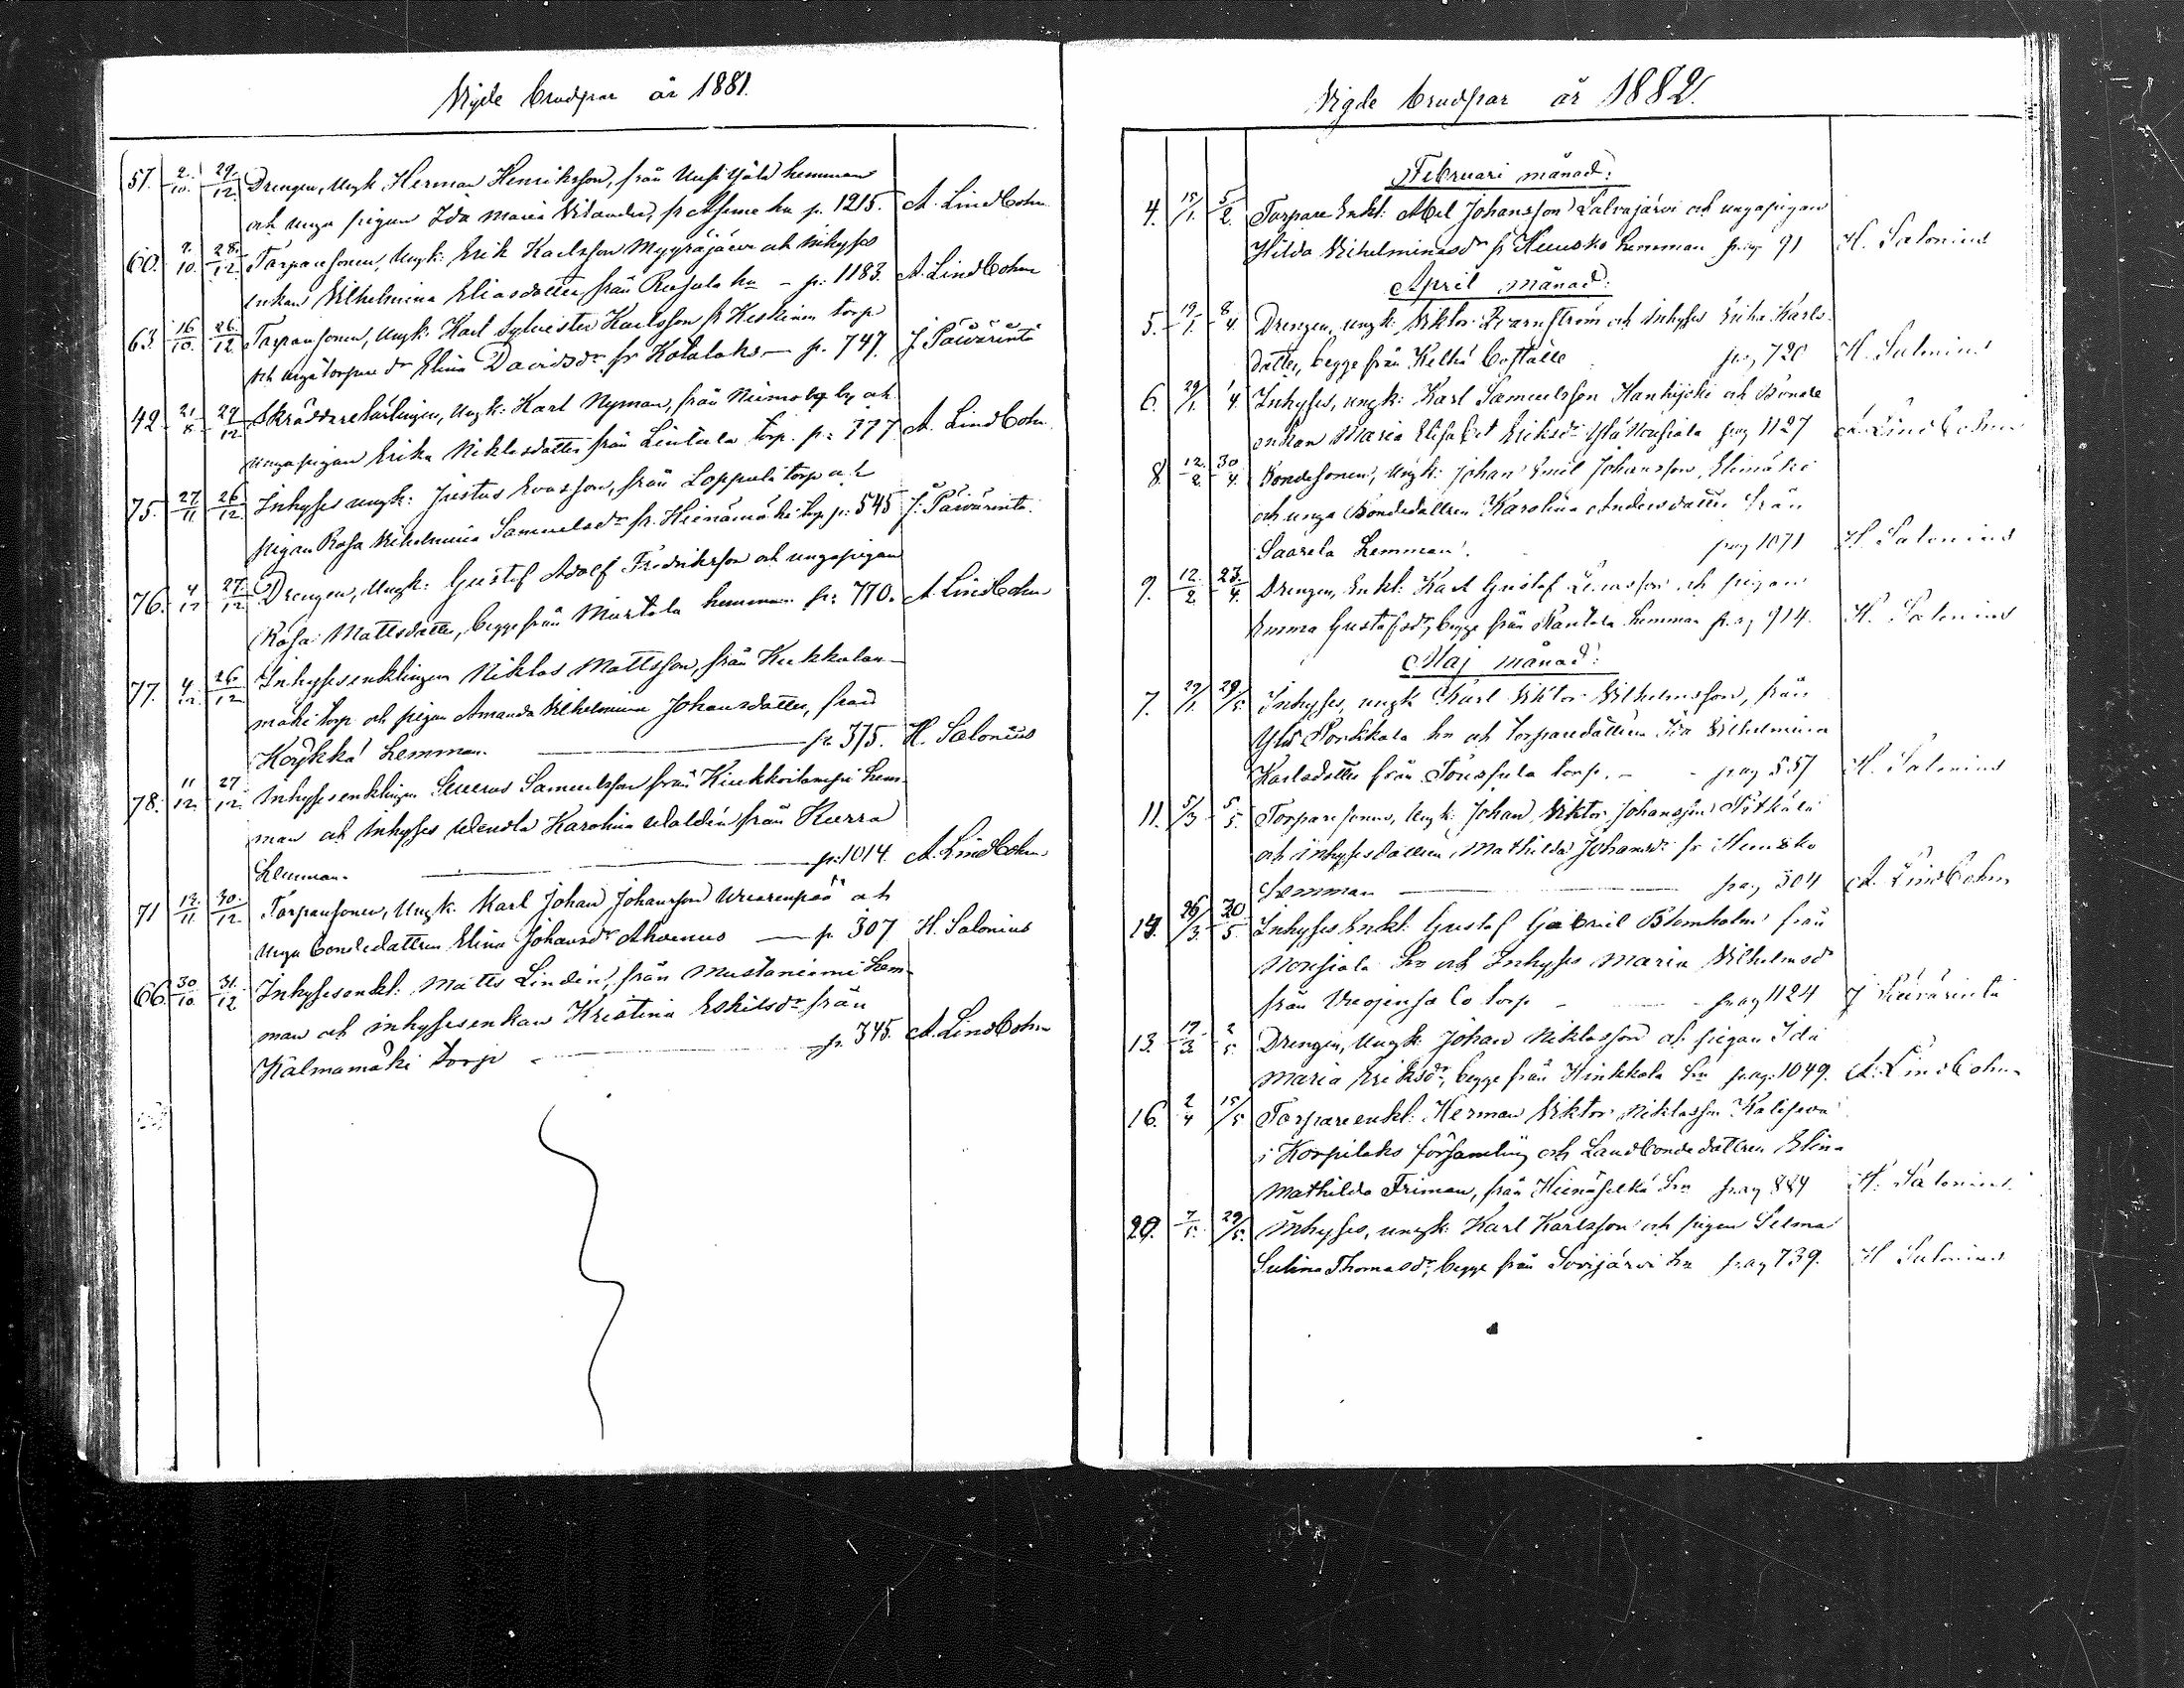 Vigde brudpar år 1881.
57. 2/10. 29/12. Drengen, Ungk. Herman Henriksson, från hemman
och unga pigan Ida Maria p. 1215. A. Lindbohm
60. 9/10. 28/12. Torparesonen, Ungk: Erik Karlsson Myyräjärvi och inhyses
enkan Vilhelmina Eliasdotter, från hn – p: 1183. A. Lindbohm
63. 16/10. 26/12. Torparesonen, Ungk: Karl Sylvester Karlsson fr Keskinen torp
och unga torpare dr Elina Davidsdr fr p. 747. J. Päivärinta
42 21/8 29/12 Skräddarelärlingen, Ungk: Karl Nyman, från by och
unga pigan Erika Niklasdotter från Lintula torp. p: 777 A. Lindbohm
75. 27/11 26/12. Inhyses ungk: Justus från Loppula torp och
pigan Rosa Vilhelmina Samuelsdr fr. Heinämäki torp p: 545 J. Päivärinta.
76. 4/12 27/12 Drengen, Ungk: Gustaf Adolf Fredriksson och unga pigan
Rosa Mattsdotter, begge från Martola hemman p: 770. A. Lindbohm
77. 4/12. 26/12 Inhysesenklingen Niklas Mattsson, från Kukkolan-
mäki torp och pigan Amanda Vilhelmina Johansdotter, från
Köykkä hemman. p. 375. H. Salonius
78. 11/12. 27/12. Inhysesenklingen Severus Samuelsson från hem-
man och Inhyses Wendla Karolina Waldén från Kurra
hemman. p: 1014. A. Lindbohm
71 13/11 30/12 Torparesonen, Ungk. Karl Johan Johansson och
unga bondedottren Elina Johansdr Ahvenus — p. 307 H. Salonius
66. 30/10 31/12 Inhysesenkl: Matts Lindén, från Mustaniemi hem-
man och inhysesenkan Kristina Eskilsdr från
Kalmamäki torp p. 345. A. Lindbohm
Vigde brudpar år 1882.
Februari månad:
4. 15/1. 5/2. Torpare Enkl: Abel Johansson Salvajärvi och unga pigan
Hilda Vilhelminasdr fr hemman pag 91 H. Salonius
April månad:
5. 19/1. 8/4. Drengen, ungk: Viktor Qvarnström och inhyses Erika Karls-
dotter, begge från Kelhä boställe pag 720 H. Salonius
6. 29/1. 1/4. Inhyses, ungk: Karl Samuelsson och Bonde
enkan Maria Elisabet Eriksdr Ylä Nousiala pag 1127 A. Lindbohm
8. 12/2. 30/4. Bondesonen, Ungk: Johan Emil Johansson, Elimäki
och unga Bondedottren Karolina Andersdotter från
Saarela hemman. pag 1071 H. Salonius
9. 12/2. 23/4. Drengen, Enkl: Karl Gustaf och pigan
Emma Gustafsdr, begge från Rantala hemman pag 914. H. Salonius
Maj månad:
7. 29/1. 29/5. Inhyses, ungk Karl Viktor Vilhelmsson, från
Yli Porkkala hn och torparedottren Ida Vilhelmina
Karlsdotter från torp. – pag 557 H. Salonius
11. 5/3 5/5. Torparesonen, Ungk: Johan Viktor Johansson Pitkälä
och inhysesdottren Mathilda Johansdr fr
hemman pag 304 A. Lindbohm
14. 26/3. 20/5. Inhyses Enkl: Gustaf Gabriel Blomholm från
Nousiala hn och Inhyses Maria Vilhelmsdr
från torp pag 1124 J. Päivärinta
13. 19/3. 2/5. Drengen, Ungk: Johan Niklasson och pigan Ida
Maria Eriksdr, begge från Hinkkala hn pag. 1049. A. Lindbohm
16. 2/4 15/5 Torpareenkl: Herman Viktor Niklasson
i Korpilaks församling och Landbondedottren Elina
Mathilda Friman, från Heinäselkä hn pag 884 H. Salonius
20. 7/5. 29/5. Inhyses, ungk: Karl Karlsson och pigan Selma
Sulina Thomasdr, begge från Sorijärvi hn pag 739. H Salonius